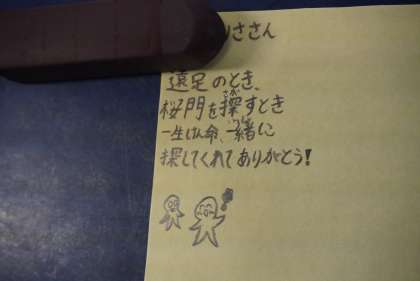 りささん
遠足のとき、
桜門を探すとき
一生けん命、一緒に
探してくれてありがとう!